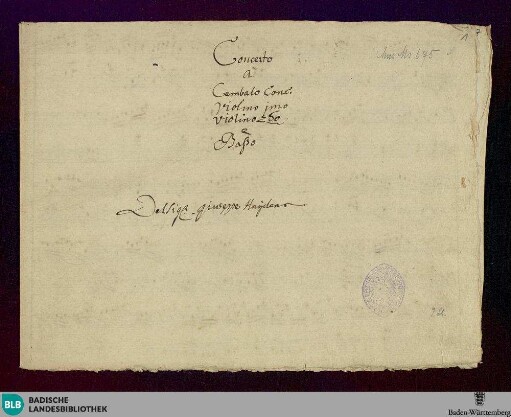 Concerto
a
Cembalo Conc:
Violino imo
Violino 2do
e
Basso
Del Sigr. Giuseppe Haydean
Mus. Ms. 675
BLB
BADISCHE
LANDESBIBLIOTHEK
Baden-Württemberg